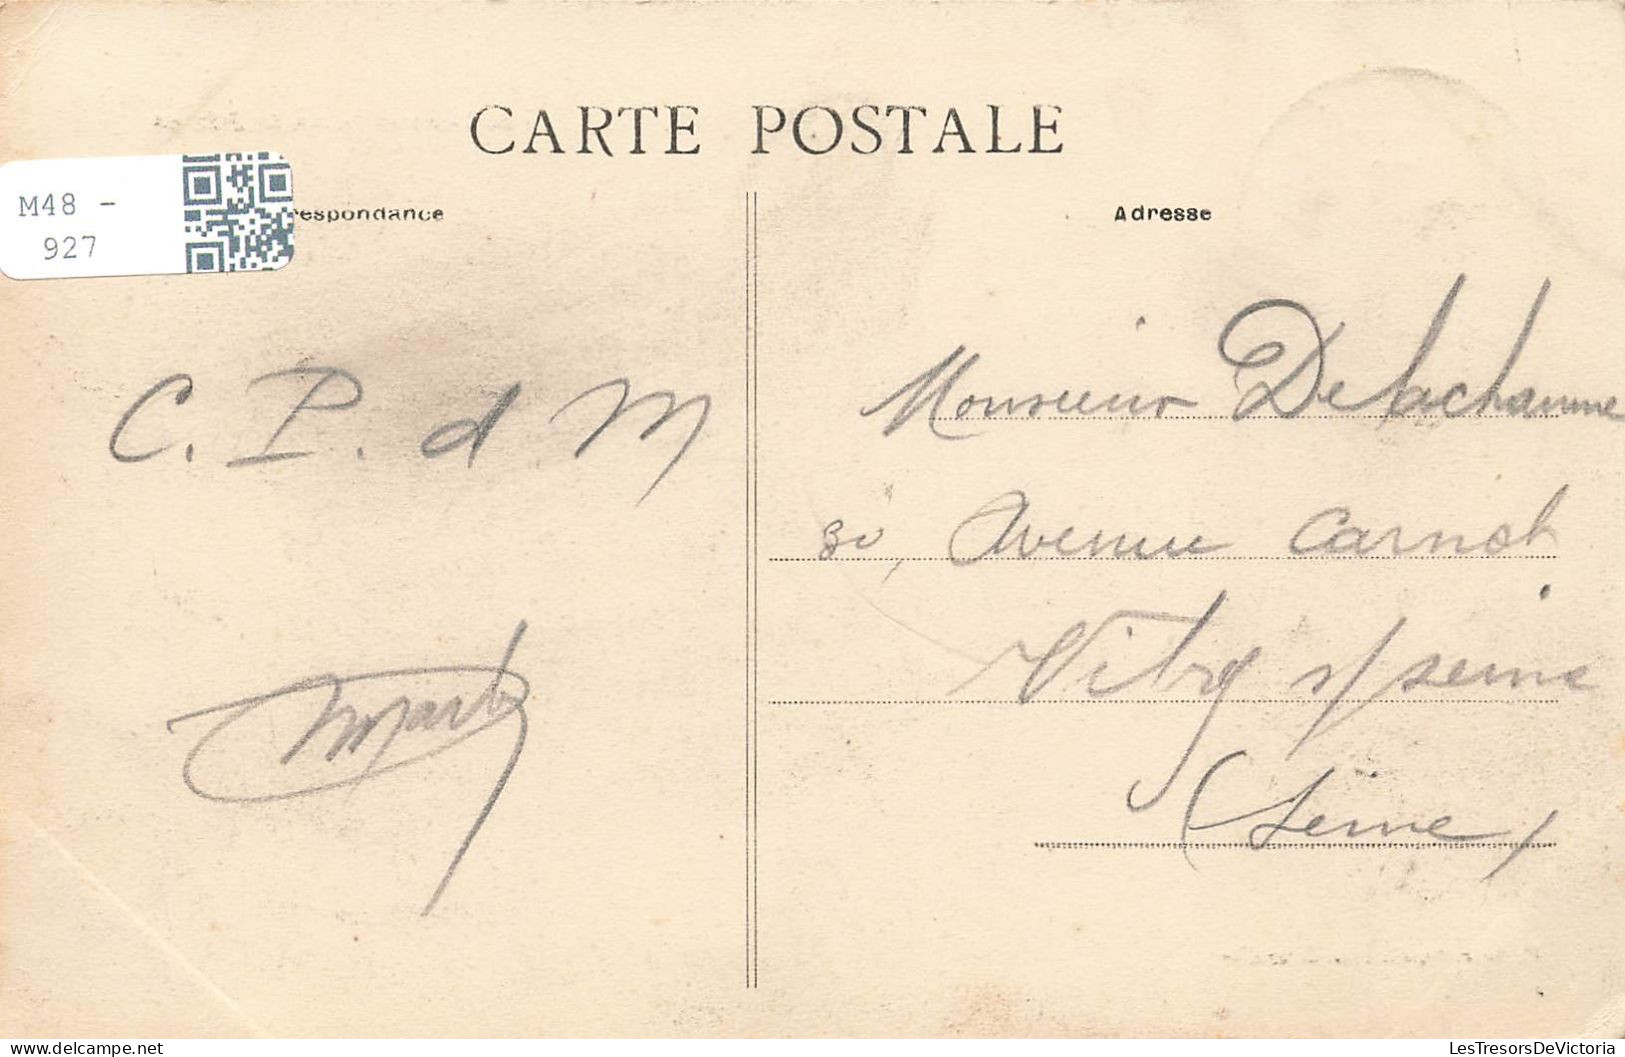 CARTE POSTALE
M48 -
927
respondance
Adresse
C. P. d M
Monsieur Delachaume
30, Avenue Carnot
Vitry s/ seine
(Seine)
LesTresorsDeVictoria